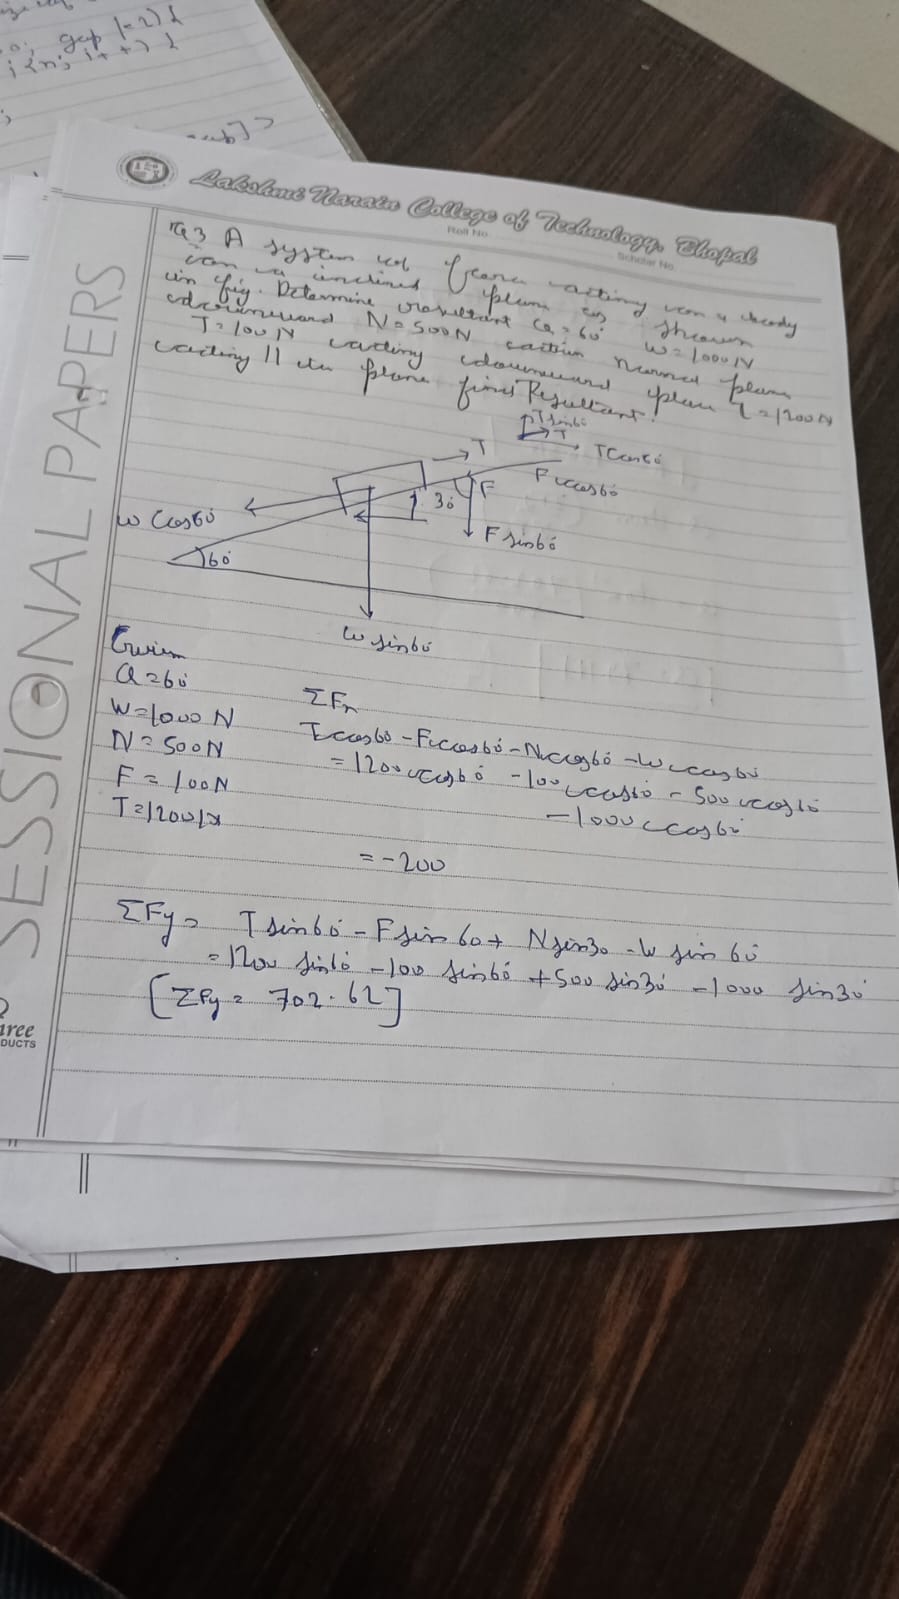 gap /=2){
i<n; i++) {
Lakshmi Narain College of Technology, Bhopal
Roll No.
Scholar No.
SESSIONAL PAPERS
Q3 A system of force acting on a body
on a inclined plane as shown
in fig. Determine resultant Q=60 W=1000N
downward N=500N action normal plane
T=100N acting downward plane T=1200N
acting || to plane find Resultant.
T sin60
T
T
T Cos60
F cos60
F
30
F sin60
W Cos60
60
W sin60
Given
Q=60
W=1000 N
N=500N
F=100N
T=1200N
ΣFx
Tcos60 -Fcos60 -Ncos60 -Wcos60
=1200cos60 -100cos60 -500cos60
-1000cos60
=-200
ΣFy= Tsin60 -Fsin60+ Nsin30 -W sin60
=1200 sin60 -100 sin60 +500 sin30 -1000 sin30
[ΣFy= 702.62]
ree
DUCTS